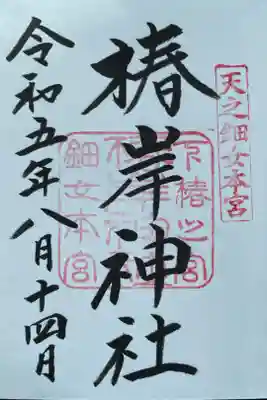 天之鈿女本宮
椿岸神社
令和五年八月十四日
下椿之宮
鈿女本宮